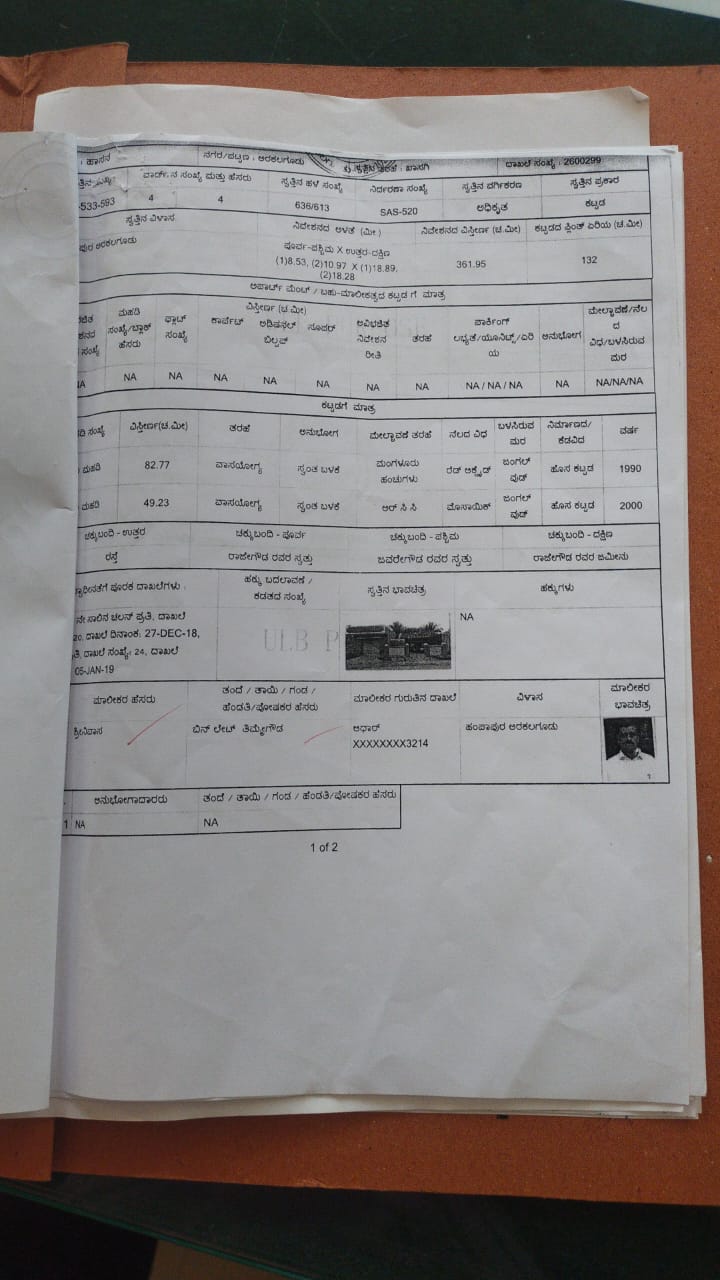 : ಹಾಸನ ನಗರ/ಪಟ್ಟಣ : ಅರಕಲಗೂಡು ಸ್ವತ್ತಿನ ತರಹೆ : ಖಾಸಗಿ ದಾಖಲೆ ಸಂಖ್ಯೆ : 2600299
ವಾರ್ಡ್‌ನ ಸಂಖ್ಯೆ ಮತ್ತು ಹೆಸರು ಸ್ವತ್ತಿನ ಹಳೆ ಸಂಖ್ಯೆ ನಿರ್ಧರಣಾ ಸಂಖ್ಯೆ ಸ್ವತ್ತಿನ ವರ್ಗಿಕರಣ ಸ್ವತ್ತಿನ ಪ್ರಕಾರ
-533-593 4 4 636/613 SAS-520 ಅಧಿಕೃತ ಕಟ್ಟಡ
ಸ್ವತ್ತಿನ ವಿಳಾಸ ನಿವೇಶನದ ಅಳತೆ (ಮೀ) ನಿವೇಶನದ ವಿಸ್ತೀರ್ಣ (ಚ.ಮೀ) ಕಟ್ಟಡದ ಪ್ಲಿಂತ್ ಏರಿಯ (ಚ.ಮೀ)
ಪುರ ಅರಕಲಗೂಡು ಪೂರ್ವ-ಪಶ್ಚಿಮ X ಉತ್ತರ-ದಕ್ಷಿಣ
(1)8.53, (2)10.97 X (1)18.89, 361.95 132
(2)18.28
ಅಪಾರ್ಟ್ ಮೆಂಟ್ / ಬಹು-ಮಾಲೀಕತ್ವದ ಕಟ್ಟಡ ಗೆ ಮಾತ್ರ
ಮಹಡಿ ಸಂಖ್ಯೆ/ಬ್ಲಾಕ್ ಹೆಸರು ಫ್ಲಾಟ್ ಸಂಖ್ಯೆ ವಿಸ್ತೀರ್ಣ (ಚ.ಮೀ) ಅವಿಭಜಿತ ನಿವೇಶನ ರೀತಿ ತರಹೆ ಪಾರ್ಕಿಂಗ್ ಲಭ್ಯತೆ/ಯೂನಿಟ್ಸ್/ಏರಿಯ ಅನುಭೋಗ ಮೇಲ್ಛಾವಣೆ/ನೆಲದ ವಿಧ/ಬಳಸಿರುವ ಮರ
ಕಾರ್ಪೆಟ್ ಅಡಿಷನಲ್ ಬಿಲ್ಟಪ್ ಸೂಪರ್
NA NA NA NA NA NA NA NA / NA / NA NA NA/NA/NA
ಕಟ್ಟಡಗೆ ಮಾತ್ರ
ಸಂಖ್ಯೆ ವಿಸ್ತೀರ್ಣ(ಚ.ಮೀ) ತರಹೆ ಅನುಭೋಗ ಮೇಲ್ಛಾವಣೆ ತರಹೆ ನೆಲದ ವಿಧ ಬಳಸಿರುವ ಮರ ನಿರ್ಮಾಣದ/ಕೆಡವಿದ ವರ್ಷ
ಮಹಡಿ 82.77 ವಾಸಯೋಗ್ಯ ಸ್ವಂತ ಬಳಕೆ ಮಂಗಳೂರು ಹಂಚುಗಳು ರೆಡ್ ಆಕ್ಸೈಡ್ ಜಂಗಲ್ ವುಡ್ ಹೊಸ ಕಟ್ಟಡ 1990
ಮಹಡಿ 49.23 ವಾಸಯೋಗ್ಯ ಸ್ವಂತ ಬಳಕೆ ಆರ್ ಸಿ ಸಿ ಮೊಸಾಯಿಕ್ ಜಂಗಲ್ ವುಡ್ ಹೊಸ ಕಟ್ಟಡ 2000
ಚಕ್ಕುಬಂದಿ - ಉತ್ತರ ಚಕ್ಕುಬಂದಿ - ಪೂರ್ವ ಚಕ್ಕುಬಂದಿ - ಪಶ್ಚಿಮ ಚಕ್ಕುಬಂದಿ - ದಕ್ಷಿಣ
ರಸ್ತೆ ರಾಜೇಗೌಡ ರವರ ಸ್ವತ್ತು ಜವರೇಗೌಡ ರವರ ಸ್ವತ್ತು ರಾಜೇಗೌಡ ರವರ ಜಮೀನು
ಪೂರಕ ದಾಖಲೆಗಳು : ಹಕ್ಕು ಬದಲಾವಣೆ / ಕಡತದ ಸಂಖ್ಯೆ ಸ್ವತ್ತಿನ ಭಾವಚಿತ್ರ ಹಕ್ಕುಗಳು
ನೇ ಸಾಲಿನ ಚಲನ್ ಪ್ರತಿ, ದಾಖಲೆ NA
20, ದಾಖಲೆ ದಿನಾಂಕ: 27-DEC-18, ULB P
ದಾಖಲೆ ಸಂಖ್ಯೆ: 24, ದಾಖಲೆ
05-JAN-19
ಮಾಲೀಕರ ಹೆಸರು ತಂದೆ / ತಾಯಿ / ಗಂಡ / ಹೆಂಡತಿ/ಪೋಷಕರ ಹೆಸರು ಮಾಲೀಕರ ಗುರುತಿನ ದಾಖಲೆ ವಿಳಾಸ ಮಾಲೀಕರ ಭಾವಚಿತ್ರ
ಶ್ರೀನಿವಾಸ ಬಿನ್ ಲೇಟ್ ತಿಮ್ಮೇಗೌಡ ಆಧಾರ್ ಹಂಪಾಪುರ ಅರಕಲಗೂಡು
XXXXXXXX3214
1
ಅನುಭೋಗಾದಾರರು ತಂದೆ / ತಾಯಿ / ಗಂಡ / ಹೆಂಡತಿ/ಪೋಷಕರ ಹೆಸರು
1 NA NA
1 of 2